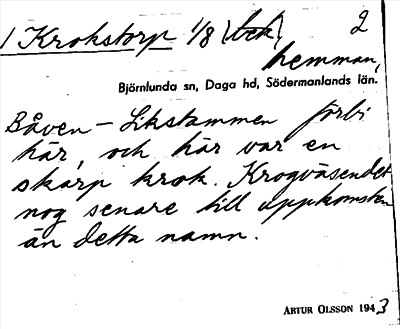 1 Krokstorp 1/8 (bek) 2
hemman,
Björnlunda sn, Daga hd, Södermanlands län.
Båven - Likstammen förbi
här, och här var en
skarp krok. Krogväsendet
nog senare till uppkomsten
än detta namn.
ARTUR OLSSON 1943